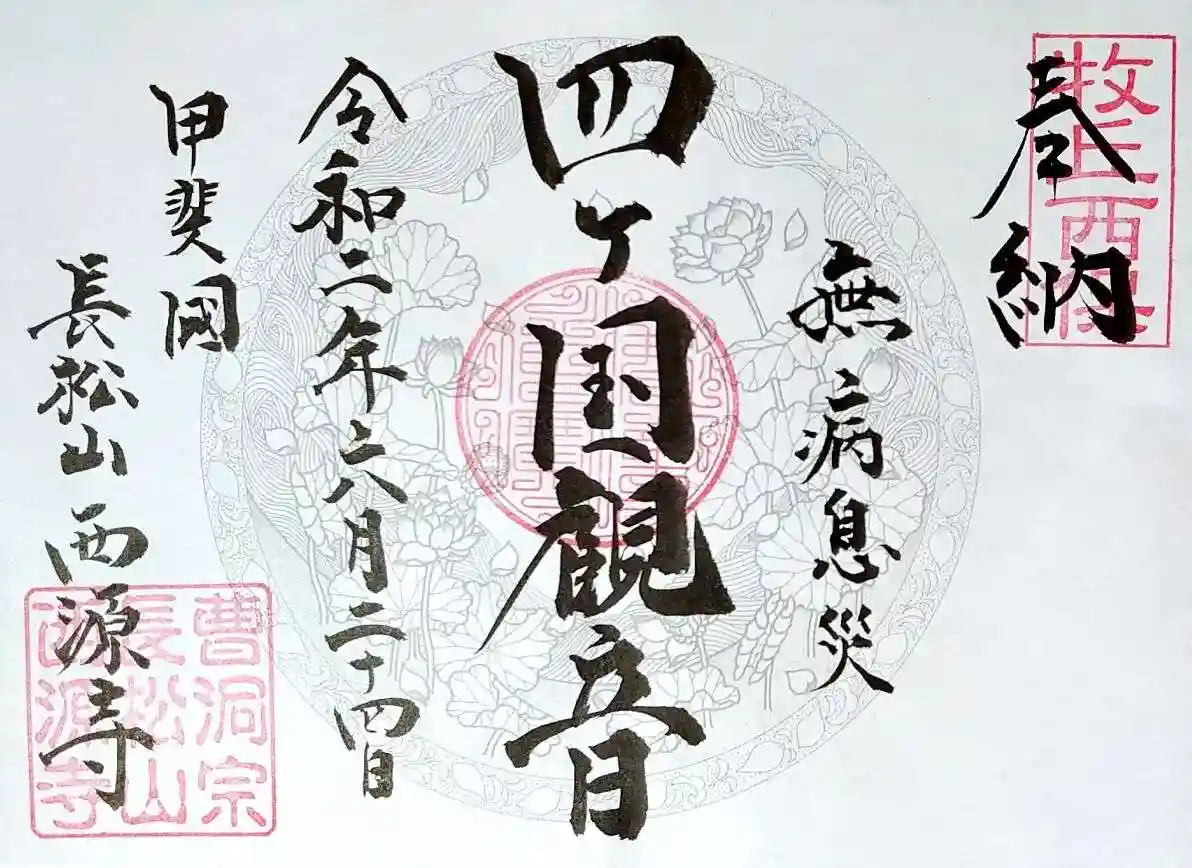 奉納
無病息災
四ケ国観音
令和二年六月二十四日
甲斐國
長松山 西源寺
牧丘西保
曹洞宗
長松山
西源寺